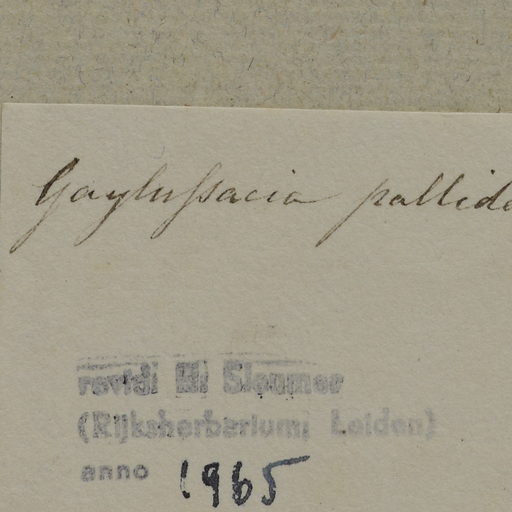 Gaylussacia pallida
revidi H. Sleumer
(Rijksherbarium, Leiden)
anno 1965